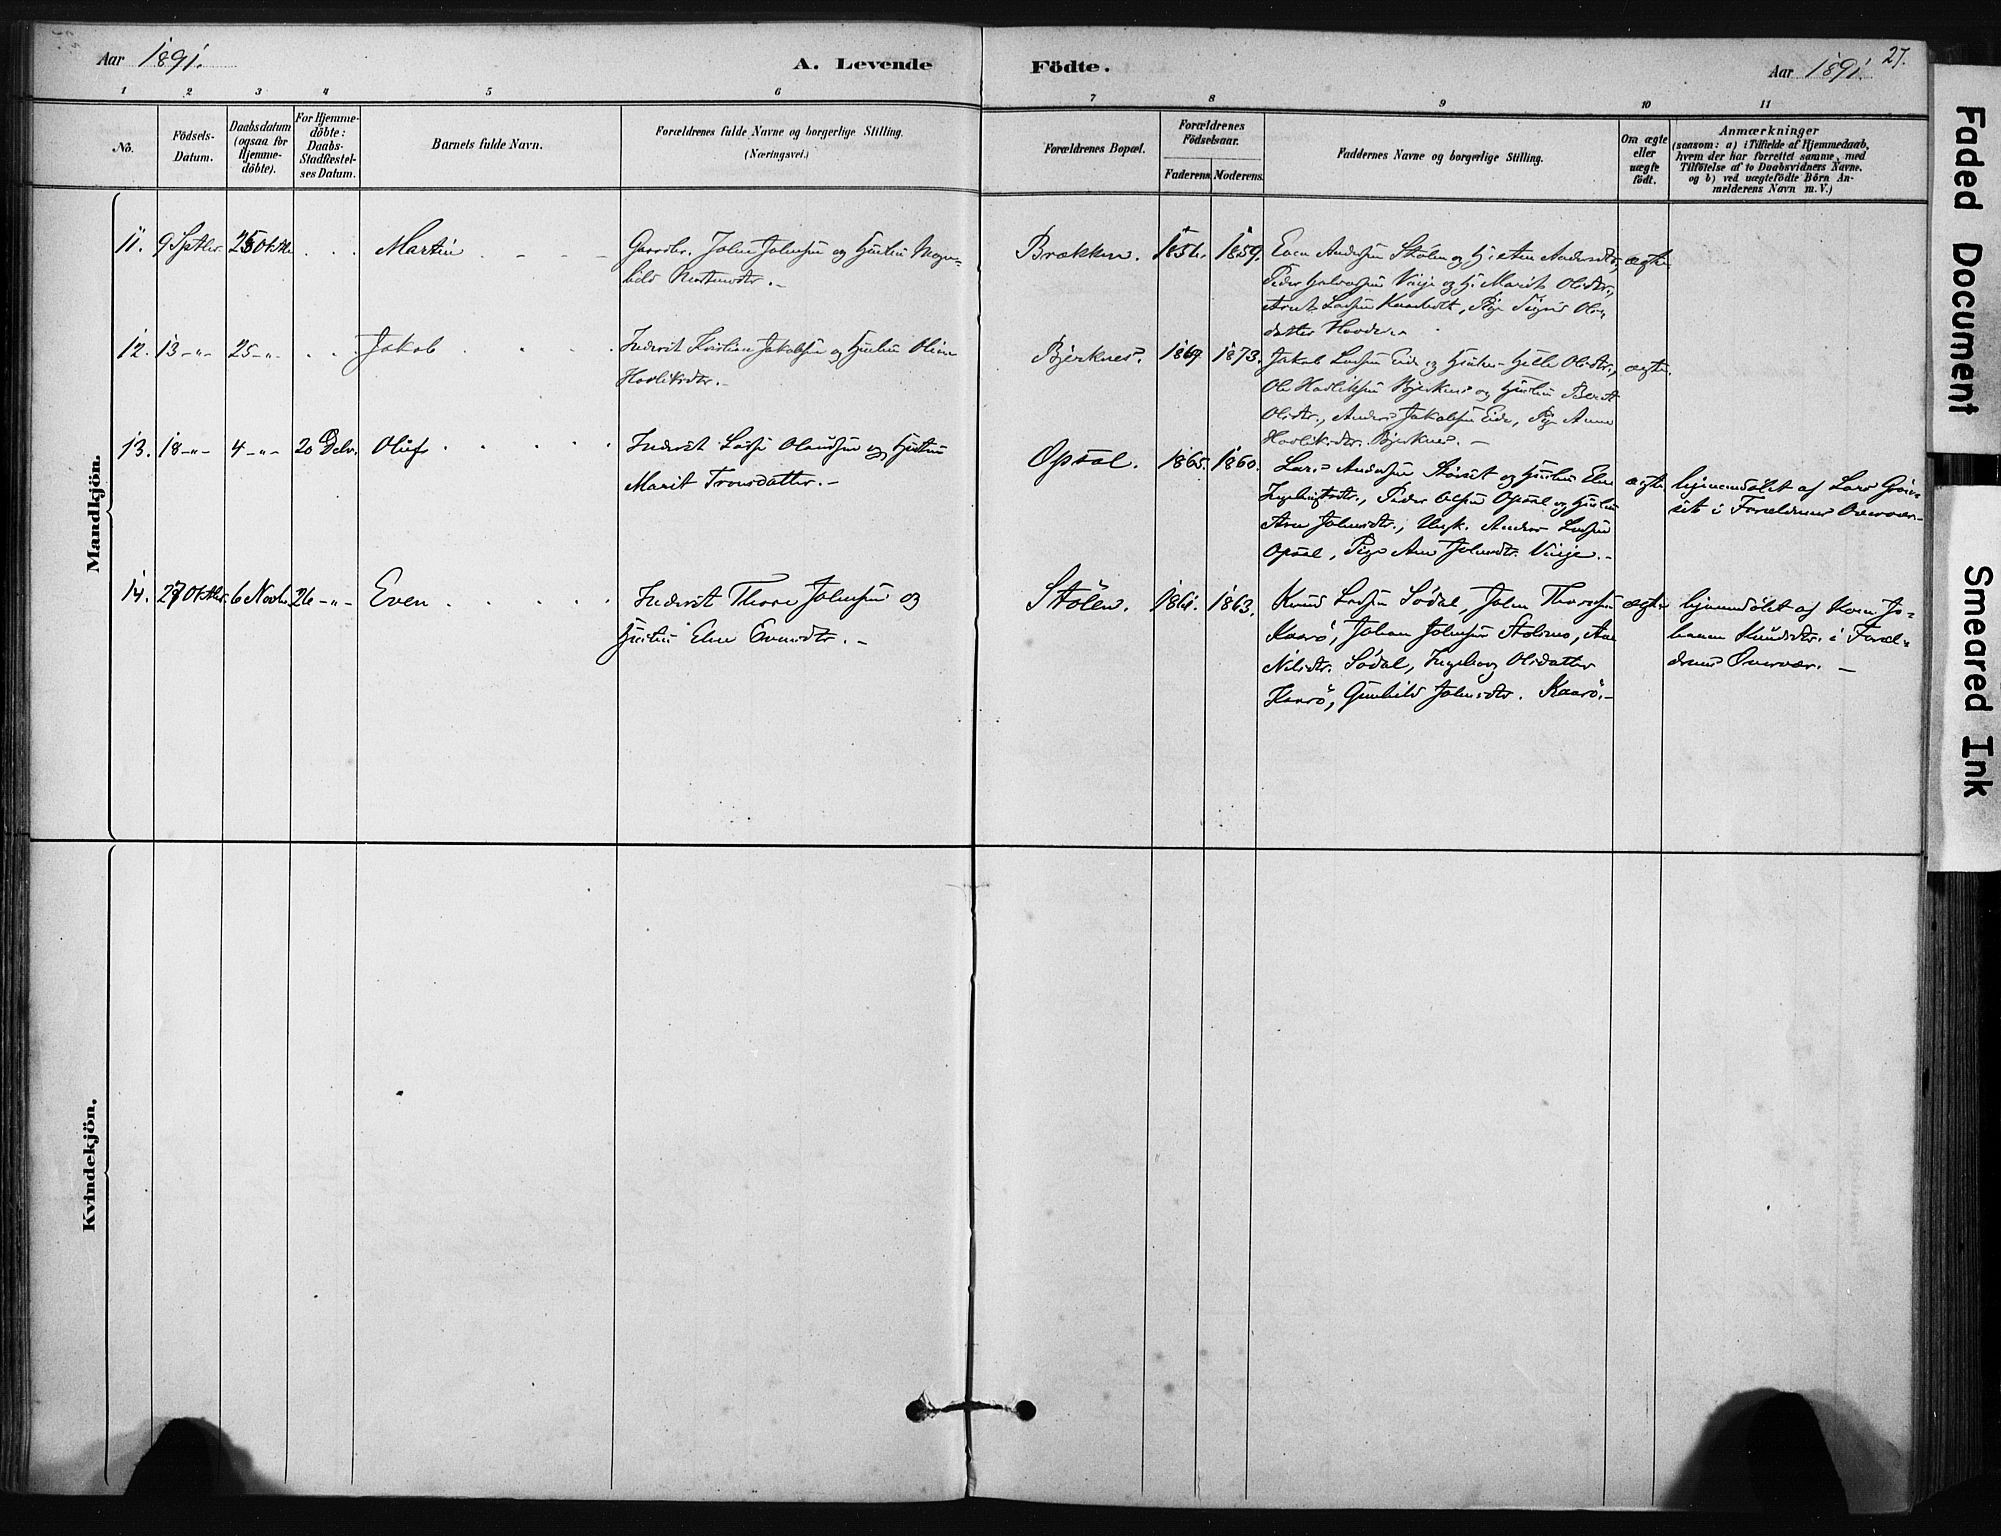 Aar 1891.
A. Levende
Födte.
Aar 1891.
27.
1 2 3 4 5 6 7 8 9 10 11
No.
Födsels-
Datum.
Daabsdatum
(ogsaa for
Hjemme-
döbte).
For Hjemme-
döbte:
Daabs-
Stadfæstel-
ses Datum.
Barnets fulde Navn.
Forældrenes fulde Navne og borgerlige Stilling.
(Næringsvei.)
Forældrenes Bopæl.
Forældrenes
Födselsaar.
Faderens. Moderens.
Faddernes Navne og borgerlige Stilling.
Om ægte
eller
uægte
födt.
Anmærkninger
(saasom: a) i Tilfælde af Hjemmedaab,
hvem der har forrettet samme, med
Tilföielse af to Daabsvidners Navne.
og b) ved uægtefödte Börn An-
melderens Navn m. V.)
Mandkjön.
11. 9 Septbr. 25 Oktbr. Martin
Gaardbr. John Johnsen og Hustru Magn-
hild
Brækken. 1854. 1859.
Even Andersen Stölen og H. Ane Andersdtr.,
Peder Halvorsen Vinje og H. Marit Olsdtr.,
Arnt Larsen, Pige Sigrid Ols-
datter
ægte.
12. 13 -"- 25 -"- Jakob
Inderst Kristian Jakobsen og Hustru Oline
Havliksdtr. -
Bjerknes. 1869. 1873.
Jakob Larsen Eide og Hustru Olsdtr.,
Ole Havliksen Bjerknes og Hustru Berit
Olsdtr., Anders Jakobsen Eide, Pige Anne
Havliksdtr. Bjerknes. -
ægte.
13. 18 -"- 4 -"- 20 Decbr. Oluf
Inderst Lars Olaussen og Hustru
Marit Tronsdatter. -
Opsal. 1865. 1860.
Lars Andersen og Hustru Elen
Ingebrigtsdtr., Peder Olsen Opsal og Hustru
Ane Johnsdtr., Ungk. Anders Larsen
Opsal, Pige Ane Johnsdtr. Vinje. -
ægte
hjemmedöbt af Lars
i Forældrenes Overvær. -
14. 27 Oktbr. 6 Novbr. 26 -"- Even
Inderst Thore Johnsen og
Hustru Elen Evensdtr. -
Stölen. 1861. 1863.
Knud Larsen Södal, John Thoresen
Kaarö, Johan Johnsen, Ane
Nilsdtr. Södal, Ingeborg Olsdatter
Kaarö, Gunhild Johnsdtr. Kaarö. -
ægte
hjemmedöbt af Jo-
hanne Knudsdtr. i Foræl-
drenes Overvær. -
Kvindekjön.
Faded Document
Smeared Ink